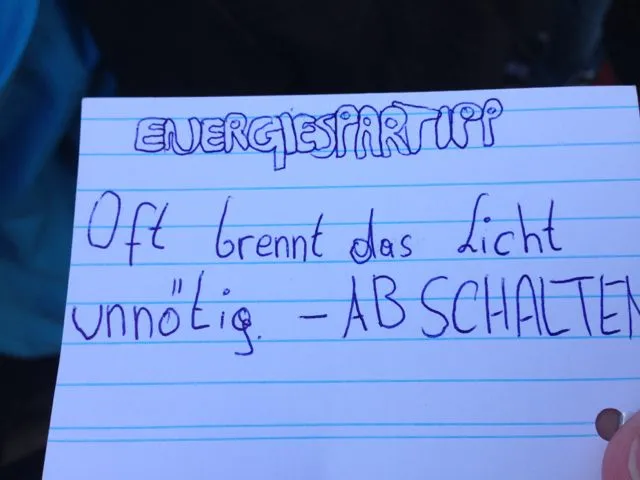 ENERGIESPARTIPP
Oft brennt das Licht
unnötig. - ABSCHALTEN